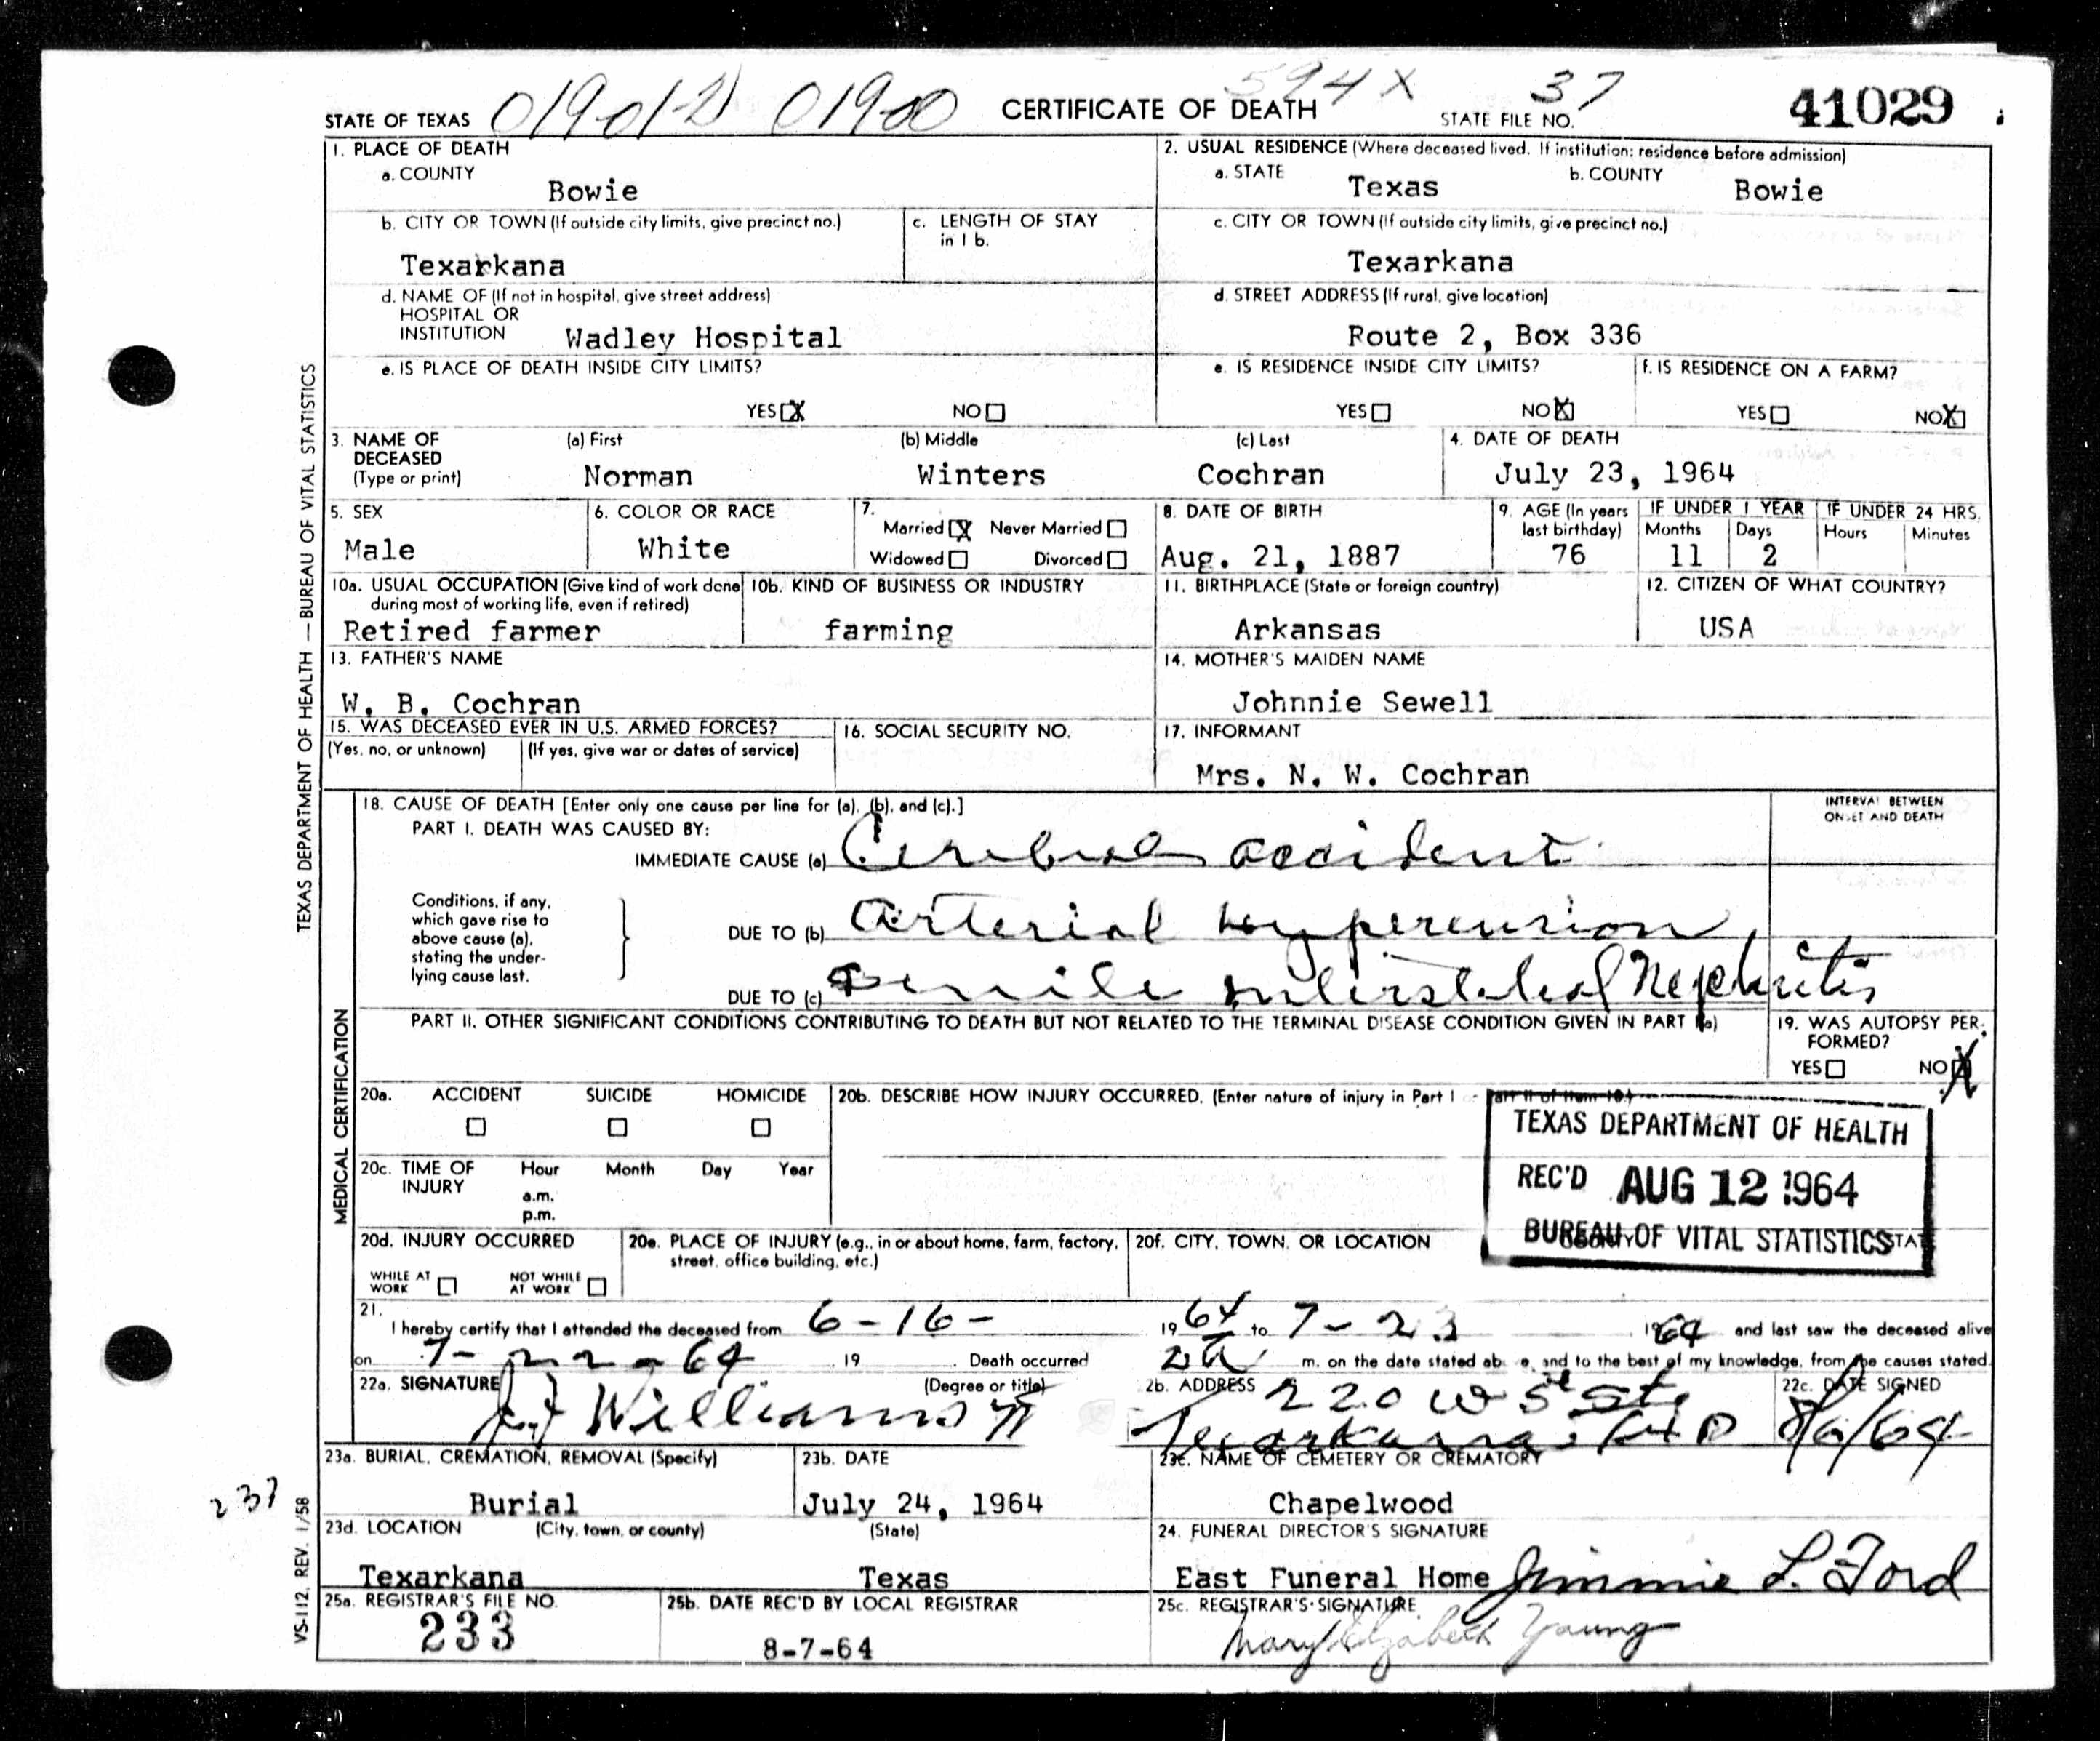 594X 37
STATE OF TEXAS 01900 CERTIFICATE OF DEATH STATE FILE NO. 41029
1. PLACE OF DEATH
a. COUNTY
Bowie
2. USUAL RESIDENCE (Where deceased lived. If institution: residence before admission)
a. STATE Texas b. COUNTY Bowie
b. CITY OR TOWN (If outside city limits, give precinct no.)
Texarkana
c. LENGTH OF STAY
in 1 b.
c. CITY OR TOWN (If outside city limits, give precinct no.)
Texarkana
d. NAME OF (If not in hospital, give street address)
HOSPITAL OR
INSTITUTION Wadley Hospital
d. STREET ADDRESS (If rural, give location)
Route 2, Box 336
e. IS PLACE OF DEATH INSIDE CITY LIMITS?
YES X NO
e. IS RESIDENCE INSIDE CITY LIMITS?
YES NO X
f. IS RESIDENCE ON A FARM?
YES NO X
3. NAME OF
DECEASED
(Type or print)
(a) First (b) Middle (c) Last
Norman Winters Cochran
4. DATE OF DEATH
July 23, 1964
5. SEX
Male
6. COLOR OR RACE
White
7.
Married X Never Married
Widowed Divorced
8. DATE OF BIRTH
Aug. 21, 1887
9. AGE (In years
last birthday)
76
IF UNDER 1 YEAR
Months Days
11 2
IF UNDER 24 HRS.
Hours Minutes
10a. USUAL OCCUPATION (Give kind of work done
during most of working life, even if retired)
Retired farmer
10b. KIND OF BUSINESS OR INDUSTRY
farming
11. BIRTHPLACE (State or foreign country)
Arkansas
12. CITIZEN OF WHAT COUNTRY?
USA
13. FATHER'S NAME
W. B. Cochran
14. MOTHER'S MAIDEN NAME
Johnnie Sewell
15. WAS DECEASED EVER IN U.S. ARMED FORCES?
(Yes, no, or unknown) (If yes, give war or dates of service)
16. SOCIAL SECURITY NO.
17. INFORMANT
Mrs. N. W. Cochran
18. CAUSE OF DEATH [Enter only one cause per line for (a), (b), and (c).]
PART I. DEATH WAS CAUSED BY:
IMMEDIATE CAUSE (a) Cerebral accident
INTERVAL BETWEEN
ONSET AND DEATH
Conditions, if any,
which gave rise to
above cause (a),
stating the under-
lying cause last.
DUE TO (b) Arterial
DUE TO (c) Senile interstitial Nephritis
PART II. OTHER SIGNIFICANT CONDITIONS CONTRIBUTING TO DEATH BUT NOT RELATED TO THE TERMINAL DISEASE CONDITION GIVEN IN PART I(a)
19. WAS AUTOPSY PER-
FORMED?
YES NO X
20a. ACCIDENT SUICIDE HOMICIDE
20b. DESCRIBE HOW INJURY OCCURRED. (Enter nature of injury in Part I or Part II of item 18.)
20c. TIME OF
INJURY
Hour Month Day Year
a.m.
p.m.
TEXAS DEPARTMENT OF HEALTH
REC'D AUG 12 1964
BUREAU OF VITAL STATISTICS
20d. INJURY OCCURRED
WHILE AT
WORK
NOT WHILE
AT WORK
20e. PLACE OF INJURY (e.g., in or about home, farm, factory,
street, office building, etc.)
20f. CITY, TOWN, OR LOCATION
21.
I hereby certify that I attended the deceased from 6-16- 1964 to 7-23 1964 and last saw the deceased alive
on 7-22-64, 19 . Death occurred 2a m. on the date stated above, and to the best of my knowledge, from the causes stated.
22a. SIGNATURE (Degree or title)
Williams
22b. ADDRESS 220 W 5th St
Texarkana
22c. DATE SIGNED
8/6/64
23a. BURIAL, CREMATION, REMOVAL (Specify)
Burial
23b. DATE
July 24, 1964
23c. NAME OF CEMETERY OR CREMATORY
Chapelwood
23d. LOCATION (City, town, or county) (State)
Texarkana Texas
24. FUNERAL DIRECTOR'S SIGNATURE
East Funeral Home Jimmie L. Ford
25a. REGISTRAR'S FILE NO.
233
25b. DATE REC'D BY LOCAL REGISTRAR
8-7-64
25c. REGISTRAR'S SIGNATURE
Mary Elizabeth Young
TEXAS DEPARTMENT OF HEALTH — BUREAU OF VITAL STATISTICS
MEDICAL CERTIFICATION
VS-112, REV. 1/58